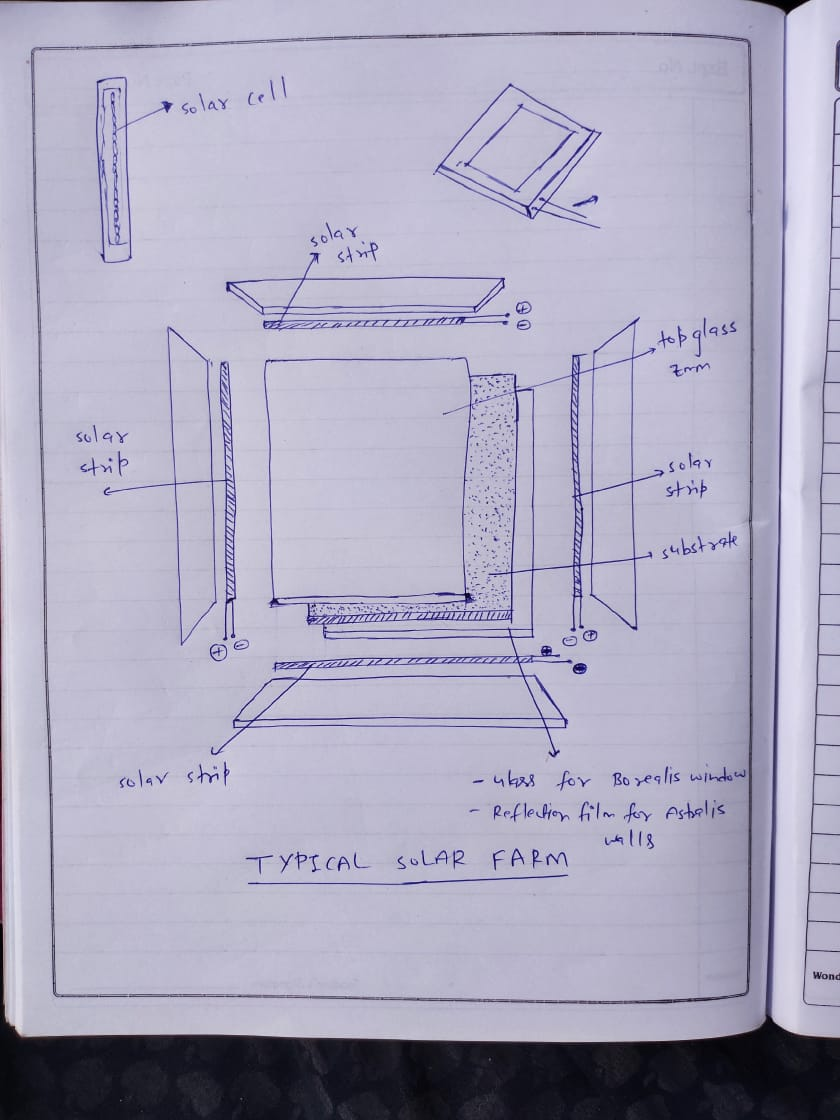 solar cell
solar
strip
⊕
⊖
top glass
solar
strip
solar
strip
substrate
⊕ ⊖
⊖ ⊕
solar strip
- Glass for Borealis window
- Reflection film for Astralis
walls
TYPICAL SOLAR FARM
Wond